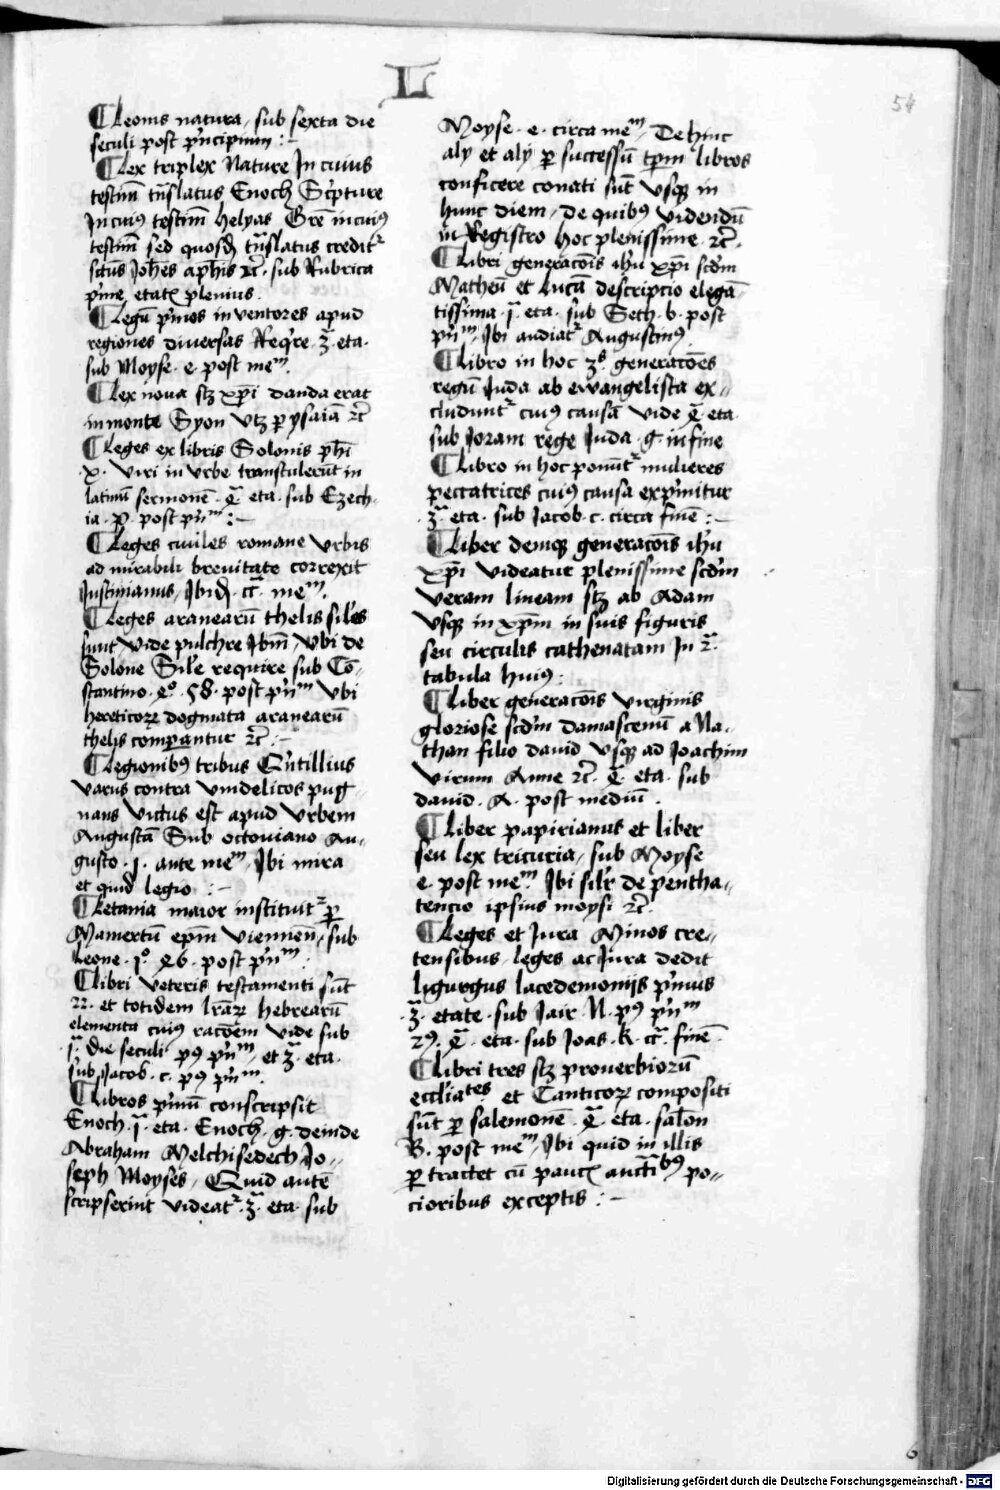 L
54
¶ Leonis natura, sub sexta die
seculi post p͛ncipium :-
¶ Lex triplex Nature In cuius
testim̄ tn̄slatus Enoch Sc͛pture
In cui9 testim̄ Helyas Gr̄e in cui9
testim̄ sed quosd̄ tn̄slatus credit᷑
sctūs Joh̄es ap̄h̄is ⁊c̄. sub Rubrica
p͛me etat᷑ plenius.
¶ Legū p͛mos inventores apud
regiones diversas Req͛re .3ᵃ. eta.
sub Moyse. e. post meᵐ.
¶ Lex nova sꝫ xp̄i danda erat
in monte Syon vtꝫ ꝑ ysaiā ⁊c̄
¶ Leges ex libris Solonis ph̄i
.x. viri in vrbe transtulerūt in
latinū sermonē .4ᵃ. eta. sub Ezech-
ia . p. post p͛nᵐ :-
¶ Leges civiles romane vrbis
ad mirabili brevitate correxit
Justinianus, Ibid̄ . cᵃ. meᵐ.
¶ Leges aranearū thelis sil̄es
sunt vide pulchre Ibm̄, vbi de
Solone Sil̄e require sub Cō-
stantino . 4⁰ . 58. post p͛nᵐ vbi
hereticoꝝ dogmata aranearū
thelis comparantur ⁊c̄ :-
¶ Legionibꝰ tribus Q͛ntillius
varus contra vindelicos pug-
nans victus est apud vrbem
Augustā Sub octoviano Au-
gusto . j. ante meᵐ. Ibi mira
et quid legio :-
¶ Letania maior instituit᷑ ꝑ
Mamertū ep̄m viennen̄, sub
Leone .1⁰. 46. post p͛nᵐ.
¶ Libri veteris testamenti sūt
22. et totidem lr̄aꝝ hebrearū
elementa cui9 rac̄oem vide sub
.1ᵃ. die seculi p9 p͛nᵐ, et 3ᵃ. eta.
sub Jacob. c. p9 p͛nᵐ.
¶ Libros p͛mū conscripsit
Enoch .1ᵃ. eta. Enoch. g. deinde
Abraham Melchisedech Jo-
seph Moyses, Quid autē
scripserint videat᷑ .3ᵃ. eta. sub
Moyse. e. circa meᵐ, Dehinc
aly et aly ꝑ successū tp̄m libros
conficere conati sūt vsqꝫ in
hunc diem, de quibꝰ videndū
in Registro hoc plenissime ⁊c̄.
¶ Libri generac̄ois ih̄u xp̄i scd̄m
Matheū et Lucā descriptio elegā-
tissima .1ᵃ. eta. sub Seth. b. post
p͛nᵐ, Ibi audiat᷑ Augustin9
¶ Libro in hoc 3ˢ. generac̄oes
regū Juda ab ewangelista ex-
cludunt᷑ cui9 causā vide 4ᵃ eta.
sub Joram rege Juda . g. in fine
¶ Libro in hoc ponūt᷑ mulieres
peccatrices cui9 causa exp͛mitur
.3ᵃ. eta. sub Jacob. c. circa finē :-
¶ Liber deniqꝫ generac̄ois ih̄u
xp̄i videatur plenissime scd̄m
veram lineam sꝫ ab Adam
vsqꝫ in xp̄m in suis figuris
seu circulis cathenatam In 2ᵃ.
tabula huius :
¶ Liber generac̄ois virginis
gloriose scd̄m damascenū a Na-
than filio david vsqꝫ ad Joachim
virum Anne ⁊c̄. 4ᵃ. eta. sub
david. A. post mediū.
¶ Liber papirianus et liber
seu lex tricuria, sub Moyse
e. post meᵐ. Ibi silr̄ de pentha-
teucio ipsius moysi ⁊c̄.
¶ Leges et Jura Minos cre-
tensibus leges ac Jura dedit
ligurgus lacedemoniis p͛mus
.3ᵃ. etate. sub Jair . N. p9 p͛nᵐ
29. 4ᵃ. eta. sub Joas. k. cᵃ. finē.
¶ Libri tres sꝫ proverbiorū
eccl̄iaᵗᵉˢ et Canticoꝝ compositi
sūt ꝑ salemonē .4ᵃ. eta. salon̄
B. post meᵐ, Ibi quid in illis
ꝑtractet cū pauc᷑ auct̄ibꝰ po-
cioribus exceptis :-
Digitalisierung gefördert durch die Deutsche Forschungsgemeinschaft - DFG